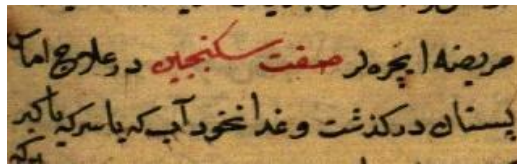 مریضه ایجره لر صفت سکنجبین در علاج اماس
پستان در کذشت و غذا نخود آب که یا سرکه یا کبر